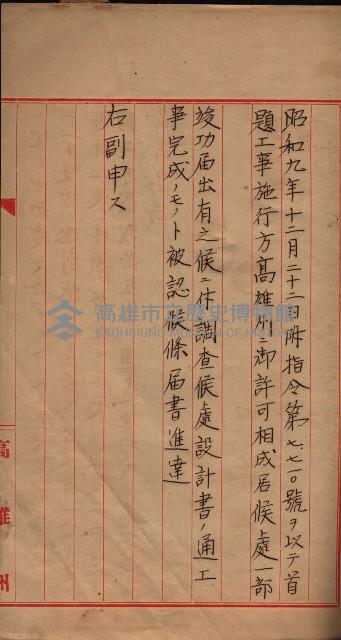 昭和九年十二月二十二日附指令第七、七一〇號ヲ以テ首
題工事施行方高雄州ニ御許可相成居候處一部
竣功届出有之候ニ付調查候處設計書ノ通工
事完成ノモノト被認候條届書進達
右副申ス
高雄州
高雄市立歷史博物館
KAOHSIUNG MUSEUM OF HISTORY